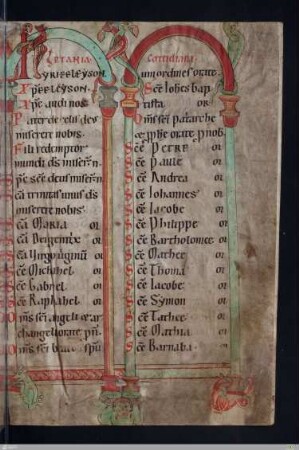 LETANIA
KYRIELEYSON
XPELEYSON
Xpe audi nos
Pater de celis ds
miserere nobis
Fili redemptor
mundi ds miserer n
Sps sce deus miserer n
Sca trinitas unus ds
miserere nobis
Sca MARIA or
Sca Deigenitrix or
Sca Virgo uirginū or
Sce Michahel or
Sce Gabriel or
Sce Raphahel or
Oms sci angeli et ar
changeli orate p n
Oms sci spu
Cottidiana
um ordines orate
Sce Iohes bap
tista or
Oms sci patarche
et pphe orate p nob
Sce PETRE or
Sce Paule or
Sce Andrea or
Sce Iohannes or
Sce Iacobe or
Sce Philippe or
Sce Bartholomee or
Sce Mathee or
Sce Thoma or
Sce Iacobe or
Sce Symon or
Sce Tathee or
Sce Mathia or
Sce Barnaba or